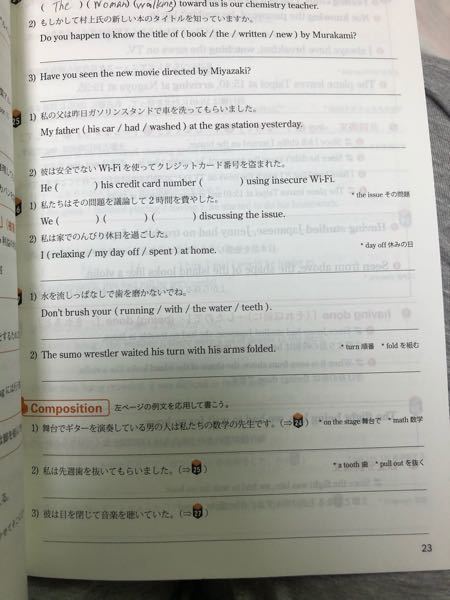 ( The ) ( Woman ) (walking) toward us is our chemistry teacher.
2) もしかして村上氏の新しい本のタイトルを知っていますか。
Do you happen to know the title of ( book / the / written / new ) by Murakami?
3) Have you seen the new movie directed by Miyazaki?
25
1) 私の父は昨日ガソリンスタンドで車を洗ってもらいました。
My father ( his car / had / washed ) at the gas station yesterday.
2) 彼は安全でない Wi-Fi を使ってクレジットカード番号を盗まれた。
He ( ) his credit card number ( ) using insecure Wi-Fi.
1) 私たちはその問題を議論して2時間を費やした。 * the issue その問題
We ( ) ( ) ( ) discussing the issue.
2) 私は家でのんびり休日を過ごした。 * day off 休みの日
I ( relaxing / my day off / spent ) at home.
1) 水を流しっぱなしで歯を磨かないでね。
Don't brush your ( running / with / the water / teeth ).
* turn 順番 * fold を組む
2) The sumo wrestler waited his turn with his arms folded.
Composition 左ページの例文を応用して書こう。
1) 舞台でギターを演奏している男の人は私たちの数学の先生です。(⇒24) * on the stage 舞台で * math 数学
2) 私は先週歯を抜いてもらいました。(⇒25) * a tooth 歯 * pull out を抜く
3) 彼は目を閉じて音楽を聴いていた。(⇒27)
23